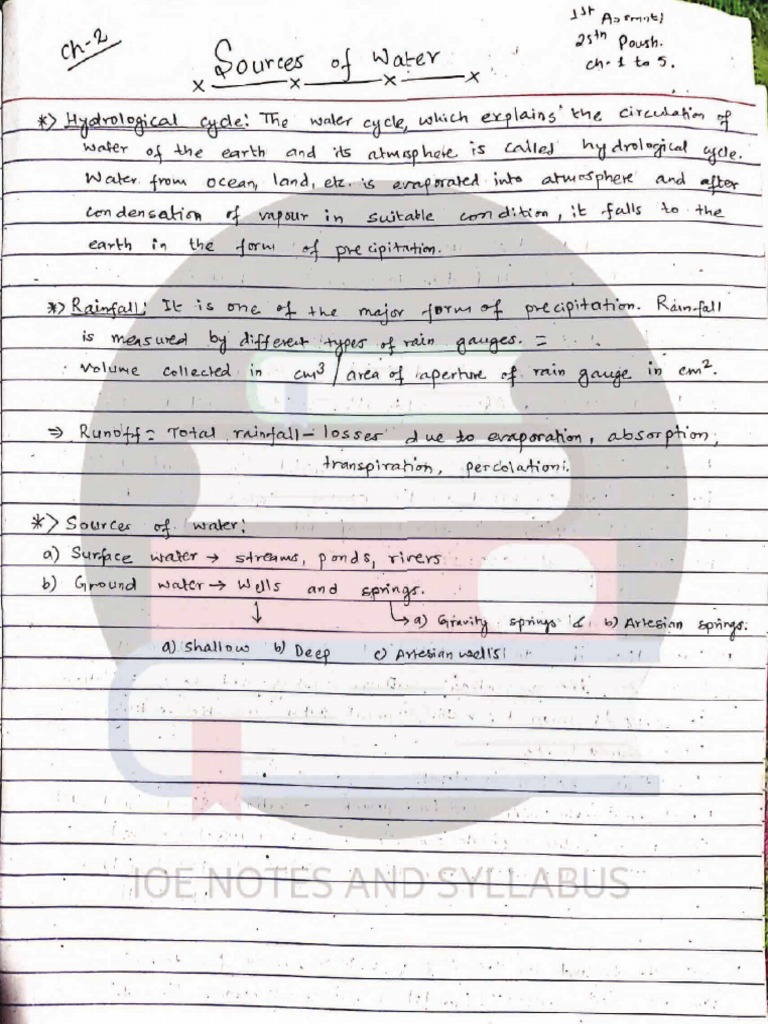 Ch-2
1st Assmnt,
25th Poush.
ch-1 to 5.
Sources of Water
x x x x
*> Hydrological cycle: The water cycle, which explains the circulation of
water of the earth and its atmosphere is called hydrological cycle.
Water from ocean, land, etc. is evaporated into atmosphere and after
condensation of vapour in suitable condition, it falls to the
earth in the form of precipitation.
*> Rainfall: It is one of the major form of precipitation. Rainfall
is measured by different types of rain gauges. =
volume collected in cm³ / area of aperture of rain gauge in cm².
⇒ Runoff = Total rainfall - losses due to evaporation, absorption,
transpiration, percolation.
*> Sources of water:
a) Surface water → streams, ponds, rivers
b) Ground water → Wells and springs.
↓ ↳ a) Gravity springs & b) Artesian springs.
a) Shallow b) Deep c) Artesian wells
IOE NOTES AND SYLLABUS